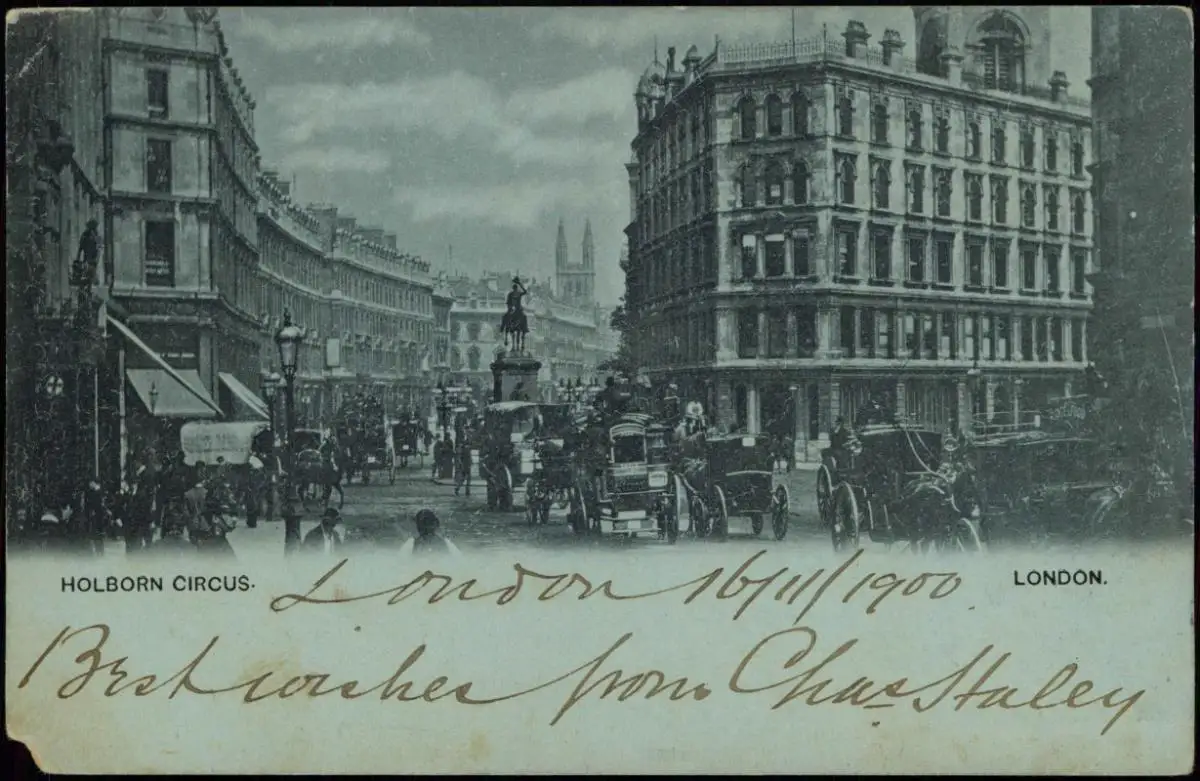 HOLBORN CIRCUS. London 16/11/1900 LONDON.
Best wishes from Chas Staley